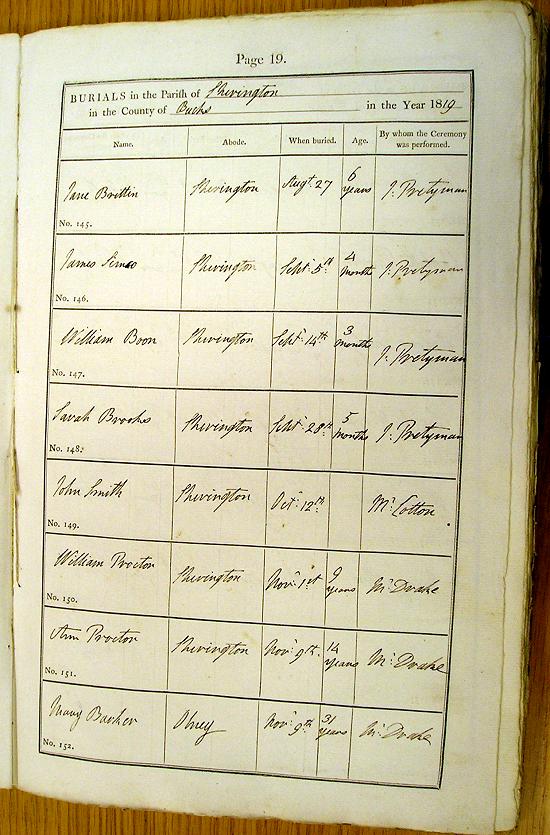 Page 19.
BURIALS in the Parish of Sherington
in the County of Bucks in the Year 1819
Name. Abode. When buried. Age. By whom the Ceremony was performed.
Jane Brittin Sherington Augt. 27 6 years J. Pretyman
No. 145.
James Simco Sherington Sept. 5th 4 Months J. Pretyman
No. 146.
William Boon Sherington Sept. 14th 3 Months J. Pretyman
No. 147.
Sarah Brooks Sherington Sept. 28th 5 Months J. Pretyman
No. 148.
John Smith Sherington Oct. 12th Mr. Cotton
No. 149.
William Proctor Sherington Novr. 1st 9 years Mr. Drake
No. 150.
Ann Proctor Sherington Novr. 9th. 14 Years Mr. Drake
No. 151.
Mary Barker Olney Novr. 9th 31 years Mr. Drake
No. 152.